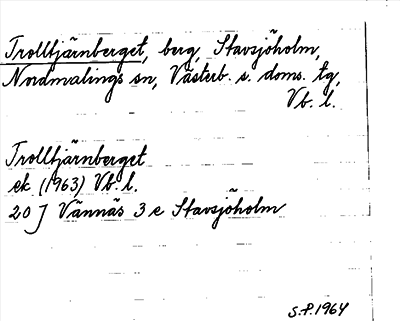 Trolltjärnberget, berg, Stavsjöholm,
Nordmalings sn, Västerb. s. doms. tg,
Vb. l.
Trolltjärnberget
ek (1963) Vb. l.
20 J Vännäs 3 e Stavsjöholm
S.P. 1964